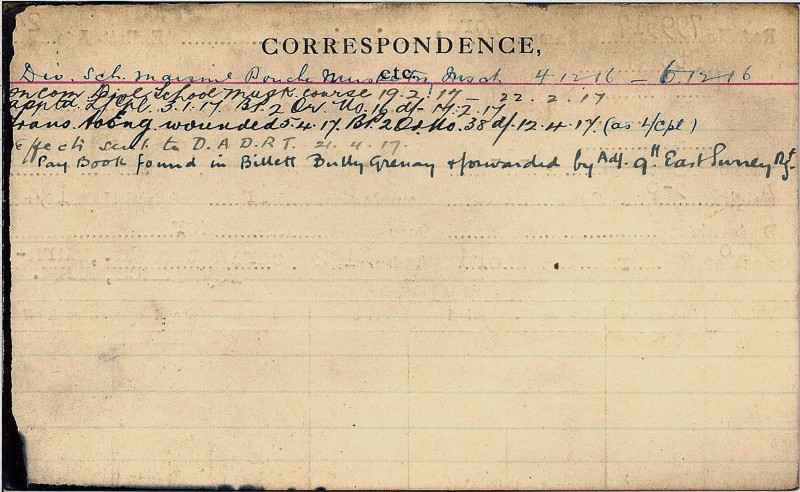 CORRESPONDENCE,
etc.
Div. Sch. Musk 4.12.16 – 6.12.16
on com Divl School musk. course 19.2.17 – 22.2.17
apptd L/Cpl. 3.1.17. Bt. 2 Or. No. 16 d/- 17.2.17
Trans. to Eng wounded 5.4.17. Bt. 2 Or. No. 38 d/- 12.4.17. (as L/Cpl)
Effects sent to D.A.D.R.T. 21.4.17.
Pay Book found in Billett Bully Grenay & forwarded by Adj. 9th East Surrey Rgt.